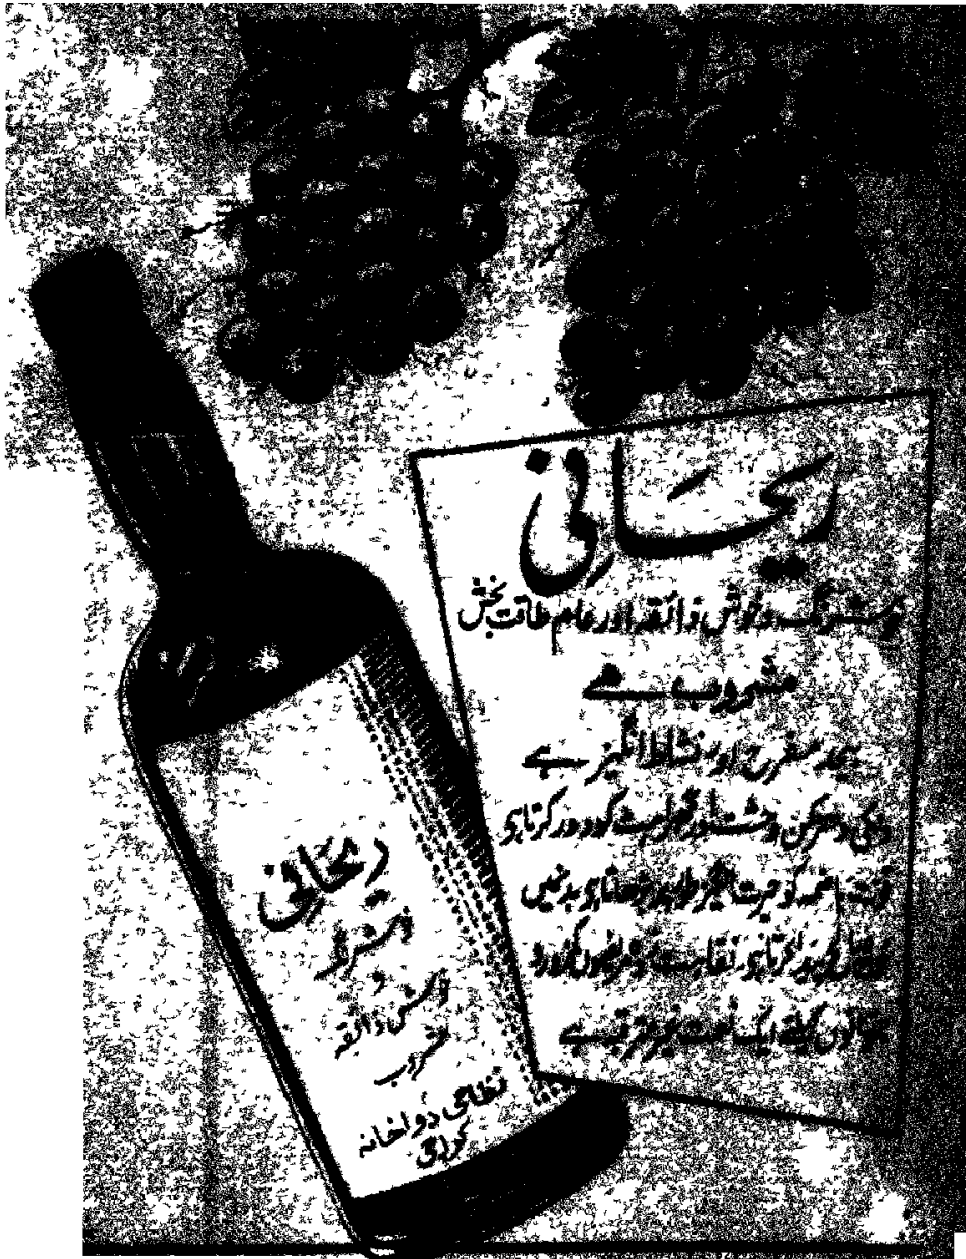 ریحانی
خوشرنگ و خوش ذائقہ اور عام طاقت بخش
مشروب ہے
بیحد مفرح اور نشاط انگیز ہے
دل کی دھڑکن وحشت اور گھبراہٹ کو دور کرتا ہی
قوت ہاضمہ کو حیرت انگیز طور پر بڑھاتا ہی بدن میں
کرتا ہی نقاہت
کیلئے ایک نعمت غیر مترقبہ ہے
ریحانی
خوشرنگ
و
خوش ذائقہ
مشروب
نظامی دواخانہ
کراچی